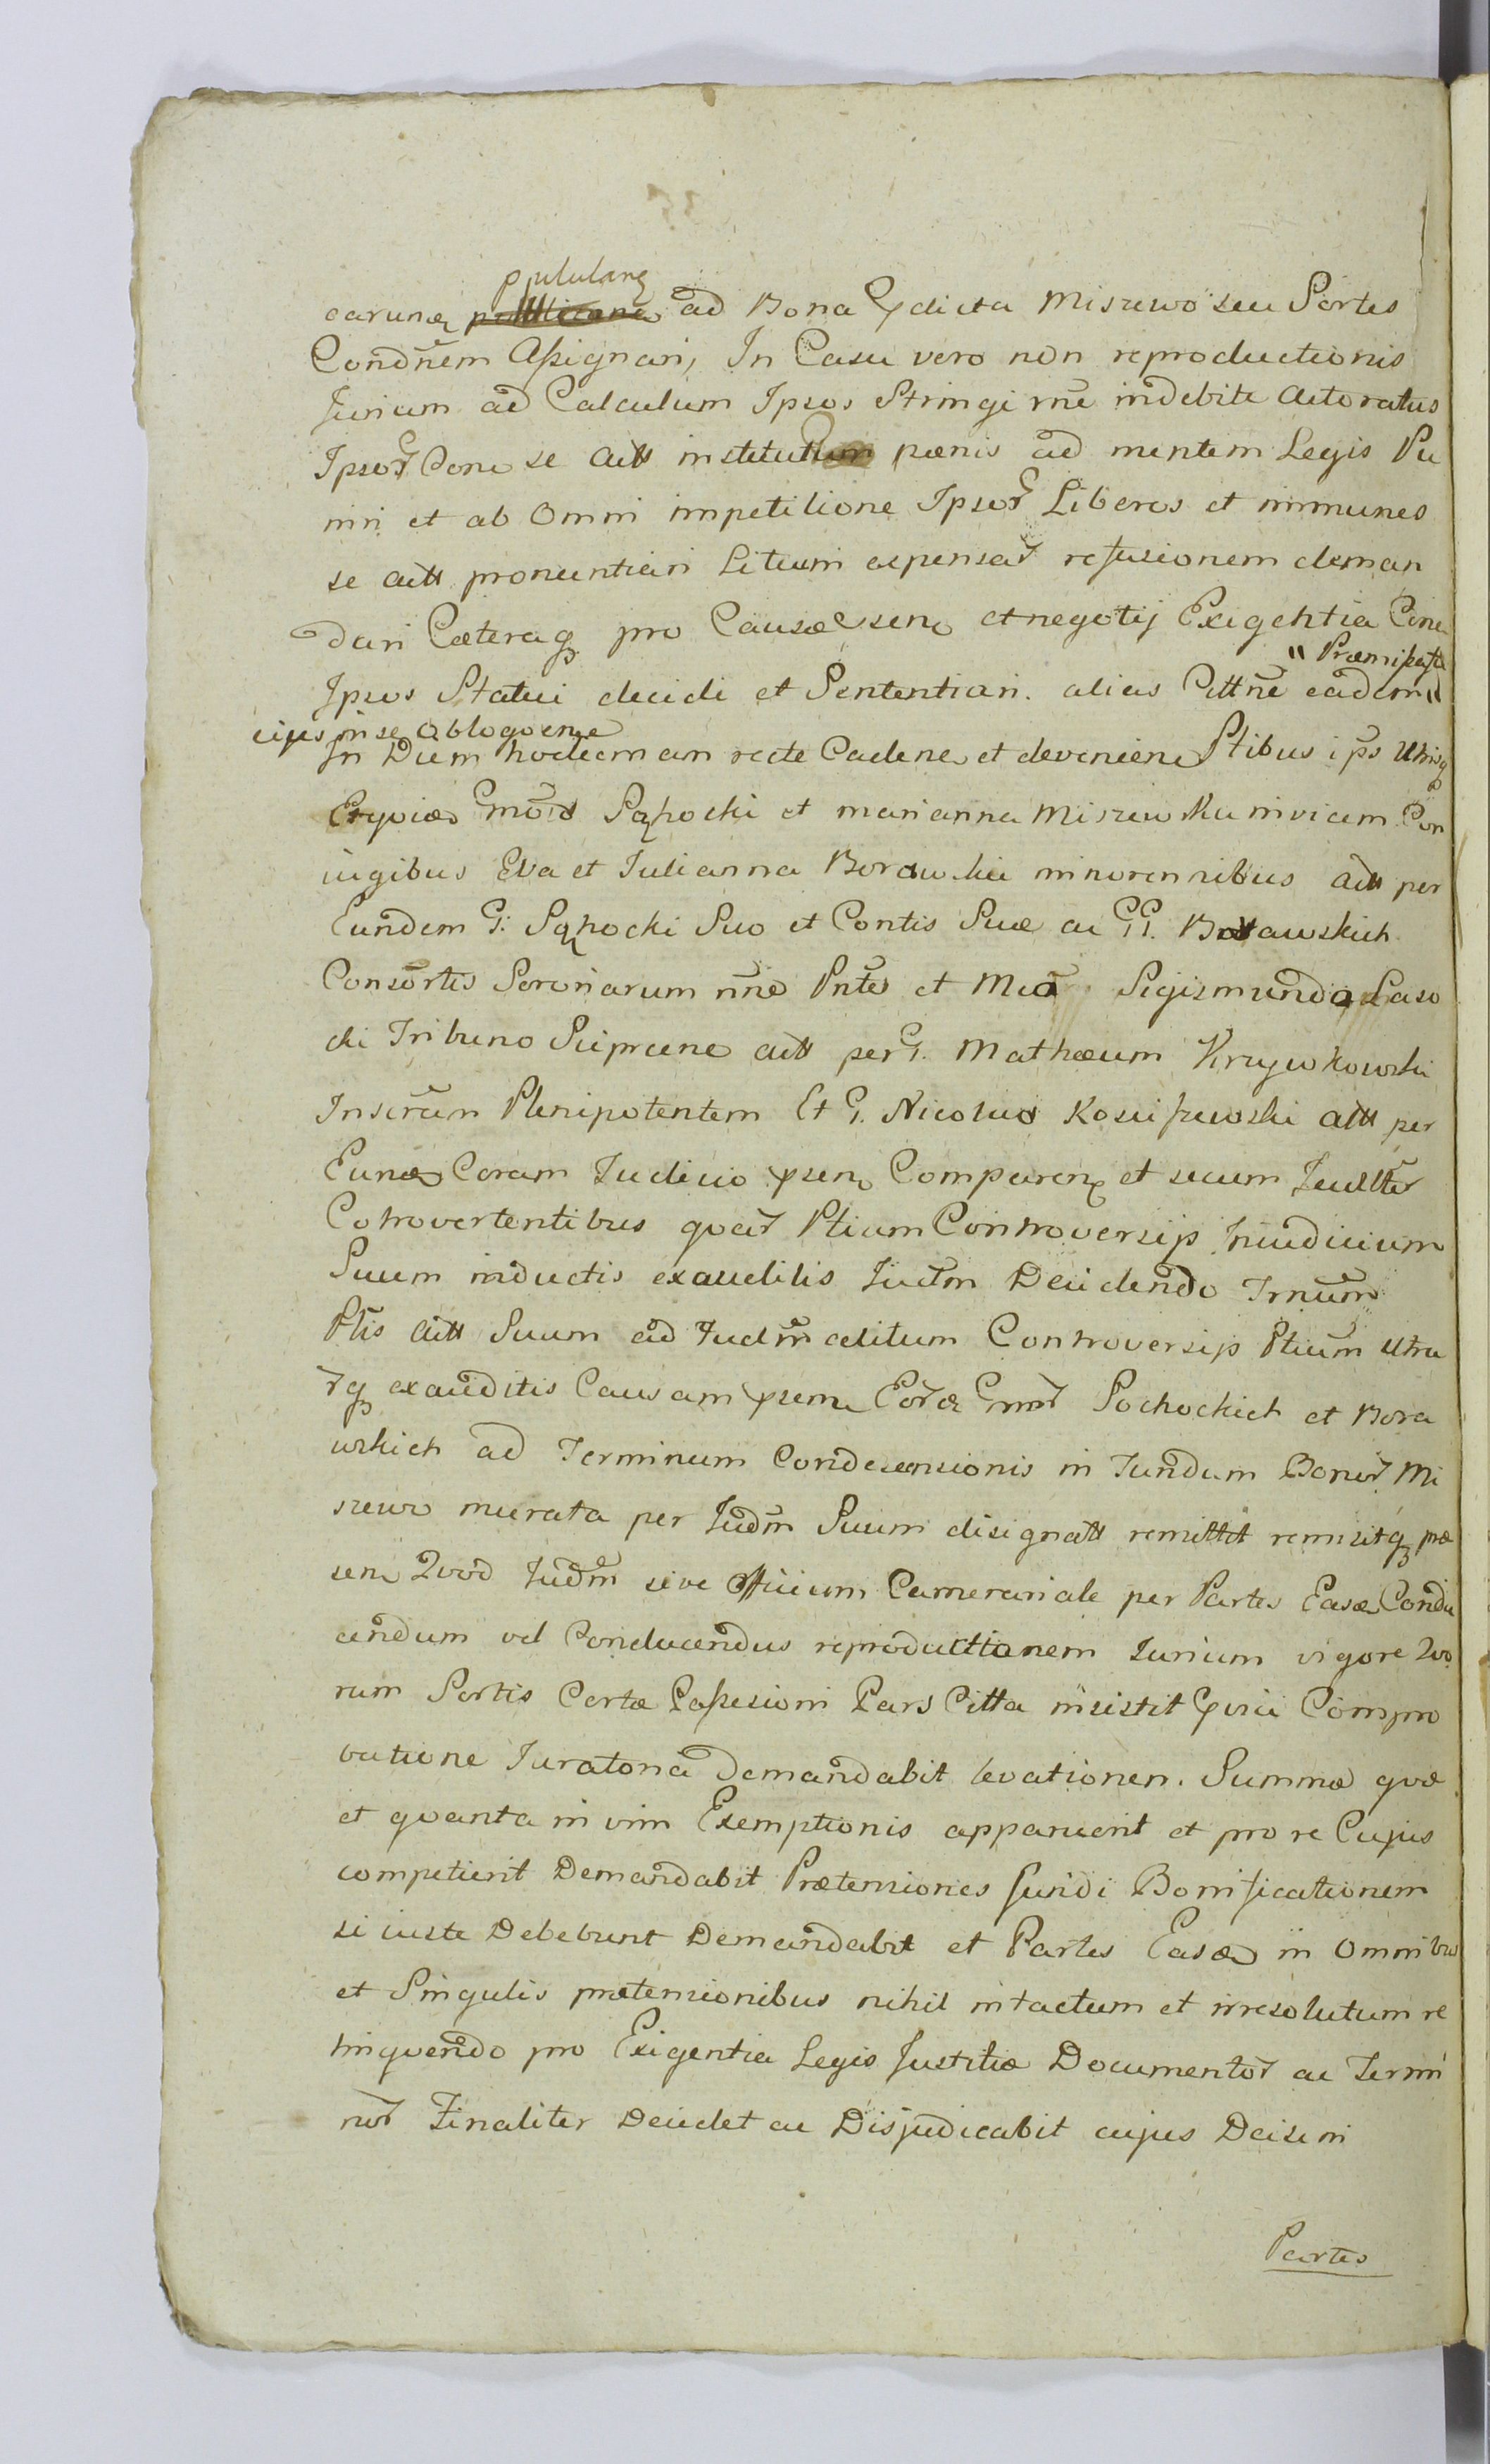 ppululang
earunq ad Bona pdicta Misiewo seu Sortes
Condnem Assignari, In Casu vero non reproductionis
Jurium ad Calculum Ipsos Stringi rne indebite Actoratus
Ipsor Cone se actt institutum pænis ad mentem Legis Pu
niri et ab Omni impetitione Ipsor Liberos et immunes
se actt pronuntiari Litium expensar refusionem deman
dari Cæteraq pro Causæ sen et negotij Exigentia Cone
" Præmissatt
Ipsos Statui decidi et Sententiari. alias Cittne eadem "
In Diem hodiernam recte Caden et devenien Ptibus ips Utrisq
Sochocki et marianna Miszewska invicem Con
iugibus Eva et Julianna Borawskie minorennibus actt per
Eundem G: Sochocki Suo et Contis Suæ ac GG. Borawskich
Consortis Sororiarum nne Pnte et Mco Sigismundo Laso
cki Tribuno Sieprcene actt per G. Mathæum Krzywkowski
Inscrum Plenipotentem Et G. Nicolao Kosciszewski actt per
Eunæ Coram Judicio psen Comparen et secum Jcultter
Cotrovertentibus qvar Ptium Controversijs Iniudicium
Suum inductis exauditis Juctm Decidendo Trnum
Ptis actt Suum ad Judm aditum Controversijs Ptium utra
rq exauditis Causam psem Eoræ Gnor Sochockich et Bora
wskich ad Terminum Condescensionis in Fundum Bonor Mi
szewo murata per Judm Suum disignatt remittit remisitq præ
sen Qvod Judm sive Officium Camerariale per Partes Easæ Condu
cendum vel Conducendus reproductionem Jurium vigore Qvo
rum Sortis Certæ Possesioni Pars Citta insistit Compro
batione Juratoria Demandabit levationen. Summæ qvæ
et qvanta in vim Exemptionis apparuerit et pro re Cujus
competierit Demandabit Prætensiones fundi Bonificationem
si iuste Debebunt Demandabit et Partes Easæ in Omnibus
et Singulis prætensionibus nihil intactum et irresolutum re
linqvendo pro Exigentia Legis Justitiæ Documentor ac Termi
nor Finaliter Decidet ac Disjudicabit cujus Decisini
Partes